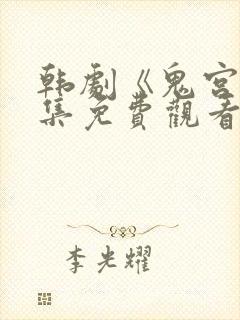 韩劇《鬼宮
集免費觀看
李光耀